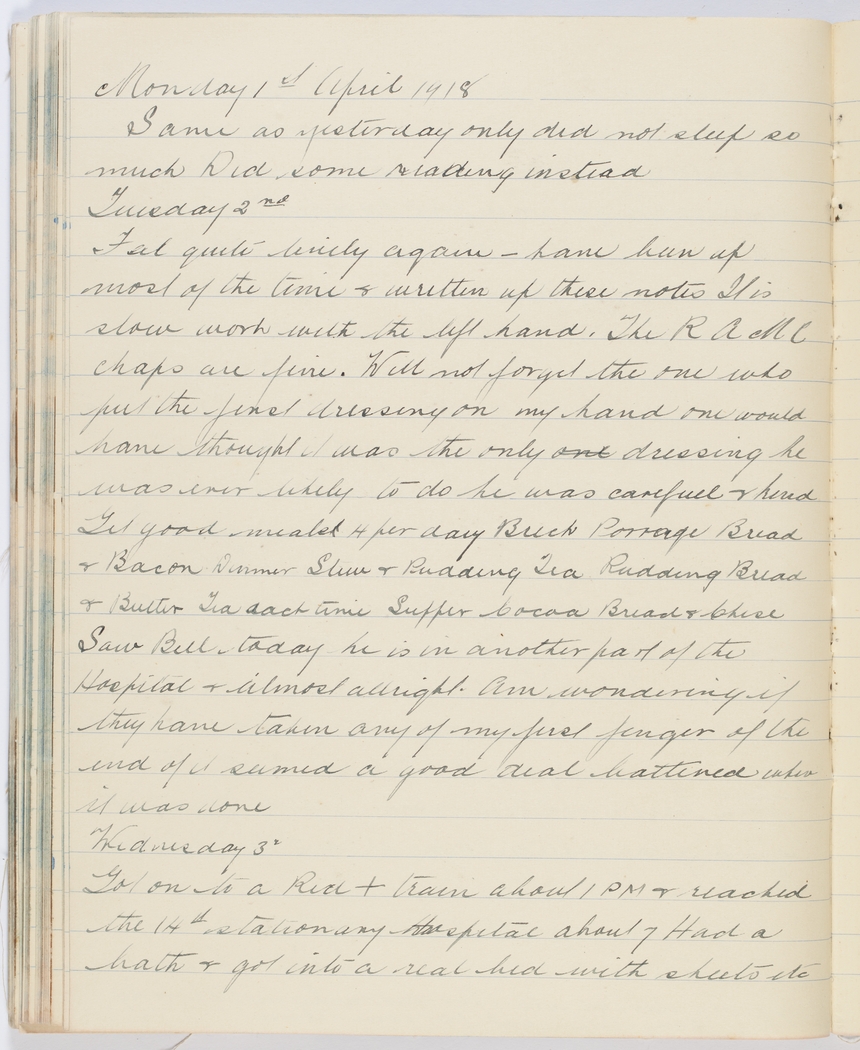 Monday 1st April 1918
Same as yesterday only did not sleep so
much Did some reading instead
Tuesday 2nd
Feel quite lively again - have been up
most of the time & written up these notes It is
slow work with the left hand. The R A M C
chaps are fine. Will not forget the one who
put the first dressing on my hand one would
have thought it was the only one dressing he
was ever likely to do he was carefuel &
Get good meals 4 per day Breck Porrage Bread
& Bacon Dinner Stew & Pudding Tea Pudding Bread
& Butter Tea each time Supper Cocoa Bread & Chese
Saw Bell today he is in another part of the
Hospital & Almost allright. Am wondering if
they have taken any of my first finger of the
end of it seemed a good deal battened when
it was done
Wednesday 3d
Got on to a Red + train about 1 PM & reached
the 14th stationary Hospital about 7 Had a
bath & got into a real bed with sheets etc